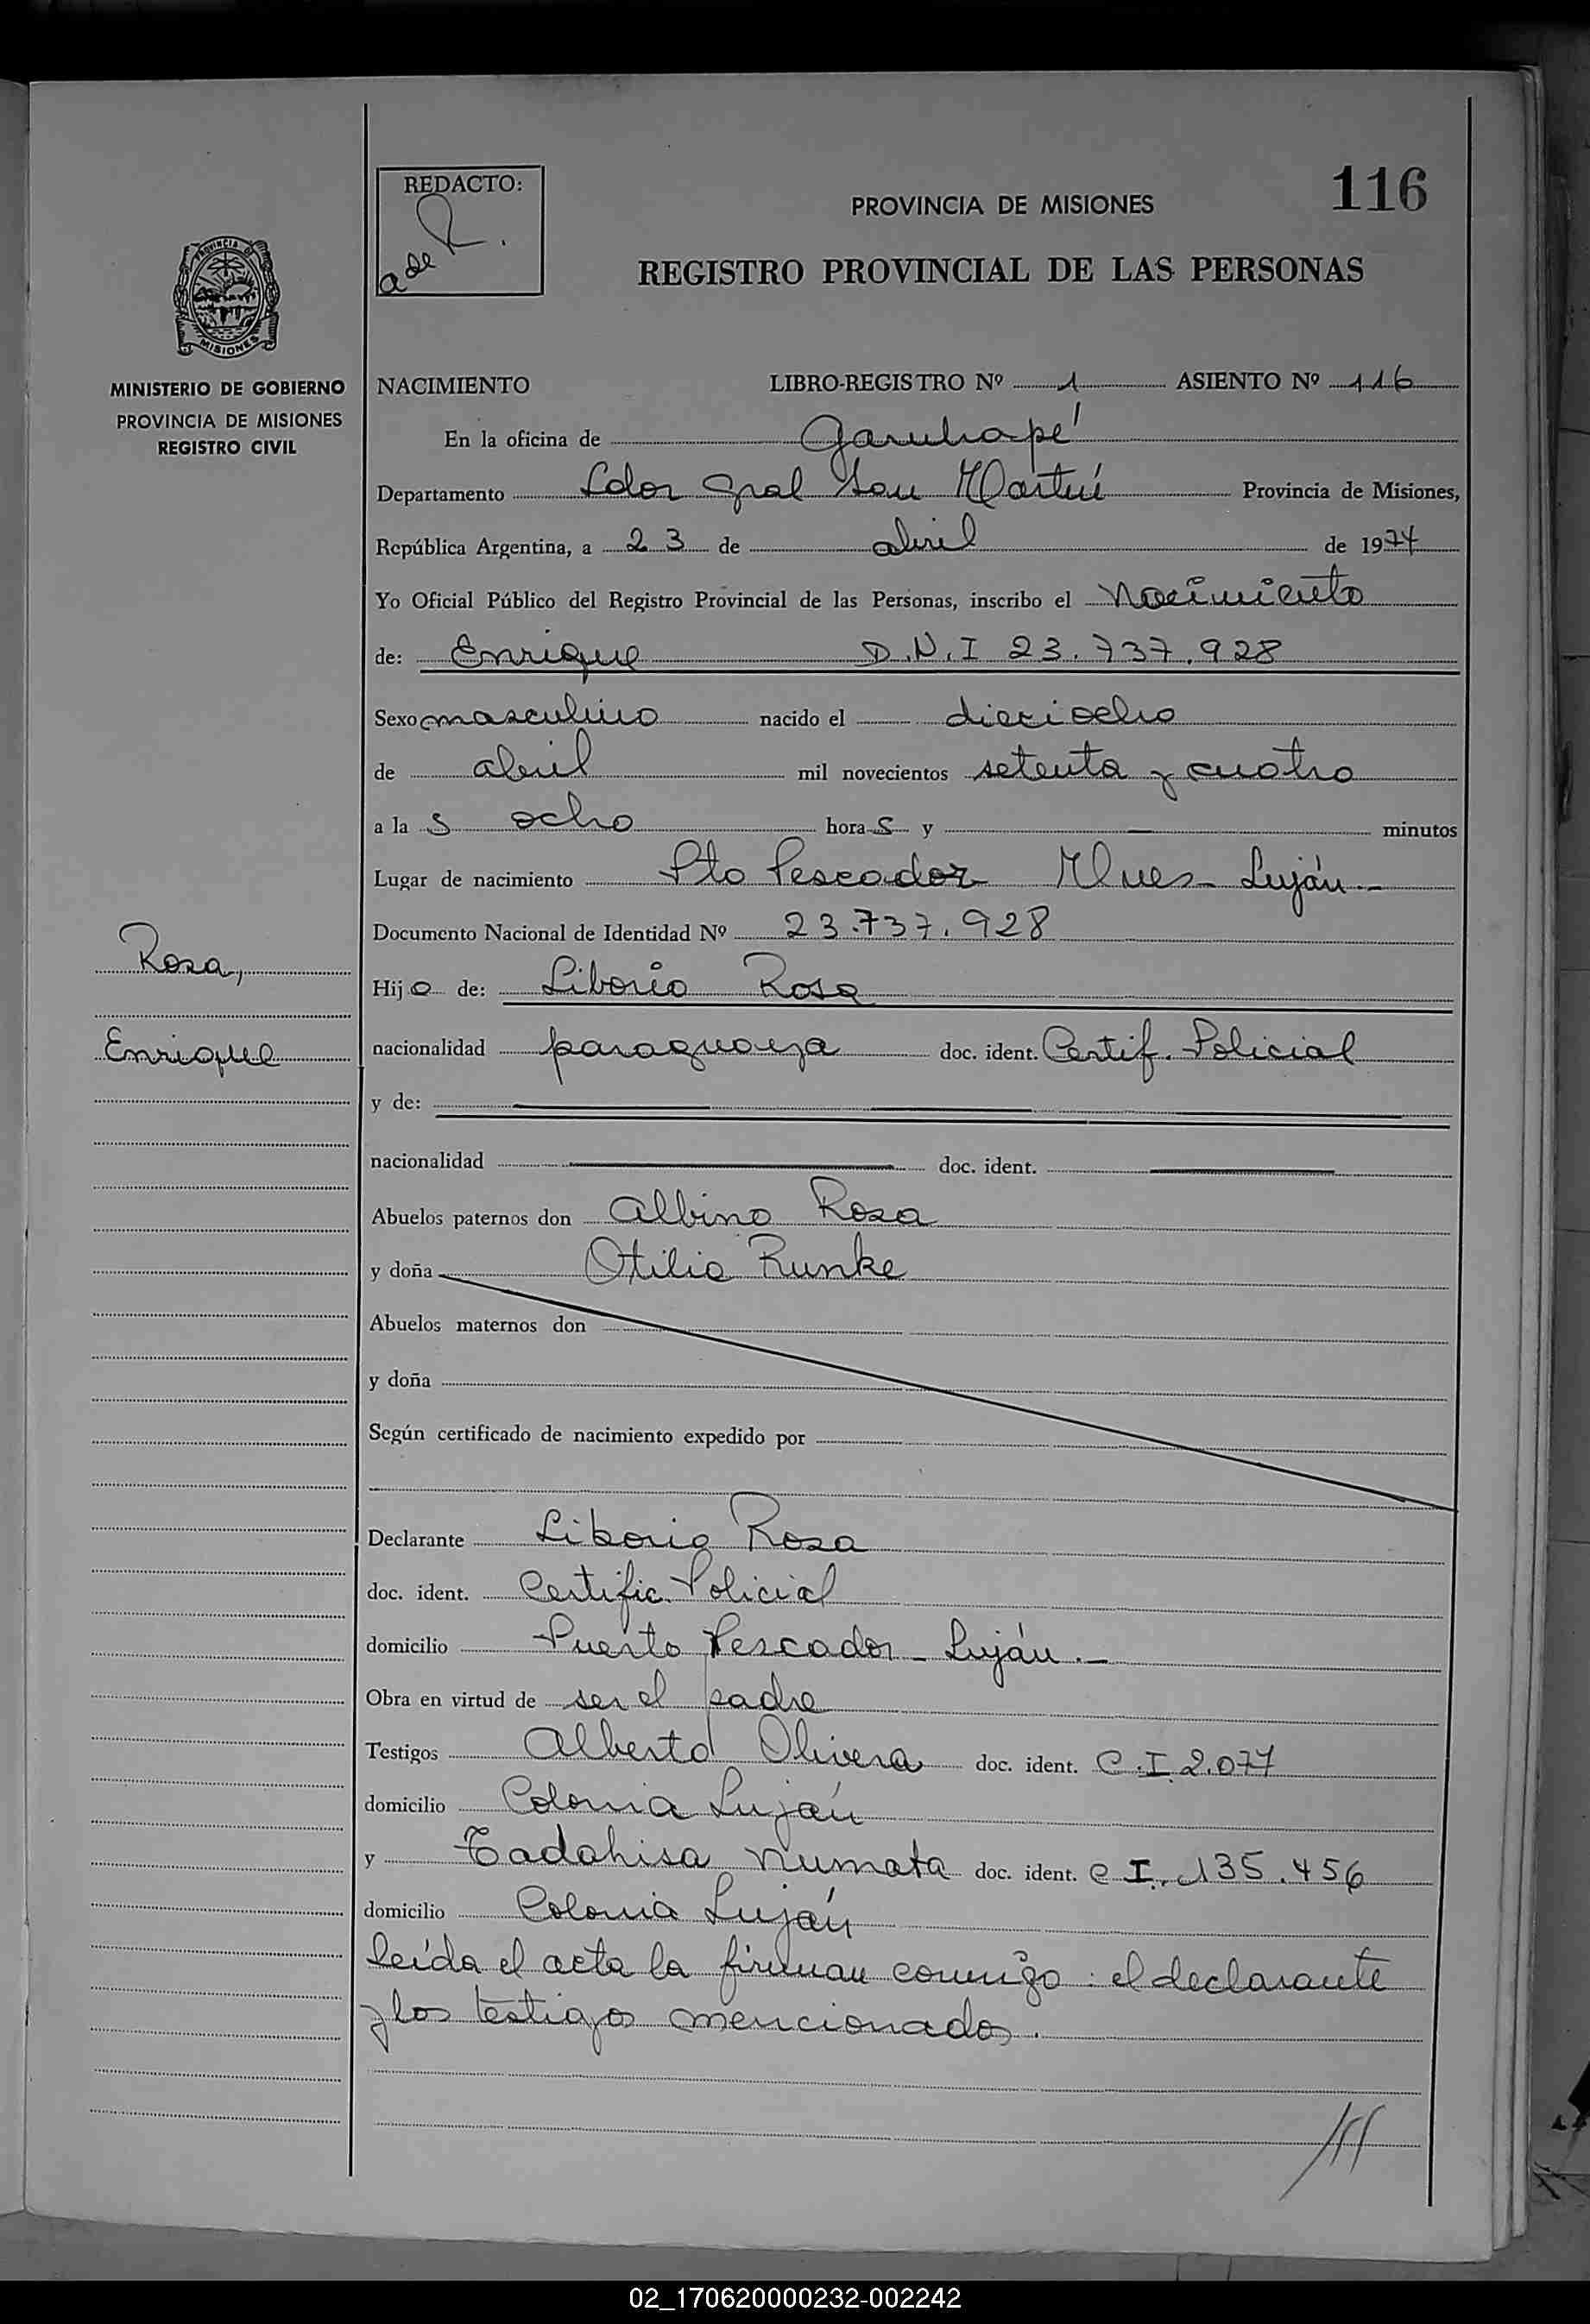 116
REDACTO:
a de R.
PROVINCIA DE MISIONES
REGISTRO PROVINCIAL DE LAS PERSONAS
PROVINCIA DE
MISIONES
MINISTERIO DE GOBIERNO
PROVINCIA DE MISIONES
REGISTRO CIVIL
NACIMIENTO LIBRO-REGISTRO Nº 1 ASIENTO Nº 116
En la oficina de Garuhapé
Departamento Ldor Gral San Martín Provincia de Misiones,
República Argentina, a 23 de abril de 1974
Yo Oficial Público del Registro Provincial de las Personas, inscribo el Nacimiento
de: Enrique D.N.I 23.737.928
Sexo masculino nacido el dieciocho
de abril mil novecientos setenta y cuatro
a la s ocho hora s y — minutos
Lugar de nacimiento Pto Pescador Mnes- Luján.-
Documento Nacional de Identidad Nº 23.737.928
Rosa,
Enrique
Hij o de: Liborio Rosa
nacionalidad paraguaya doc. ident. Certif. Policial
y de:
nacionalidad doc. ident.
Abuelos paternos don Albino Rosa
y doña Otilia Runke
Abuelos maternos don
y doña
Según certificado de nacimiento expedido por
Declarante Liborio Rosa
doc. ident. Certific. Policial
domicilio Puerto Pescador - Luján.-
Obra en virtud de ser el padre
Testigos Alberto Olivera doc. ident. C.I. 2.077
domicilio Colonia Luján
y Tadahisa Numata doc. ident. C.I. 135.456
domicilio Colonia Luján
Leída el acta la firman conmigo: el declarante
y los testigos mencionados.
02_170620000232-002242